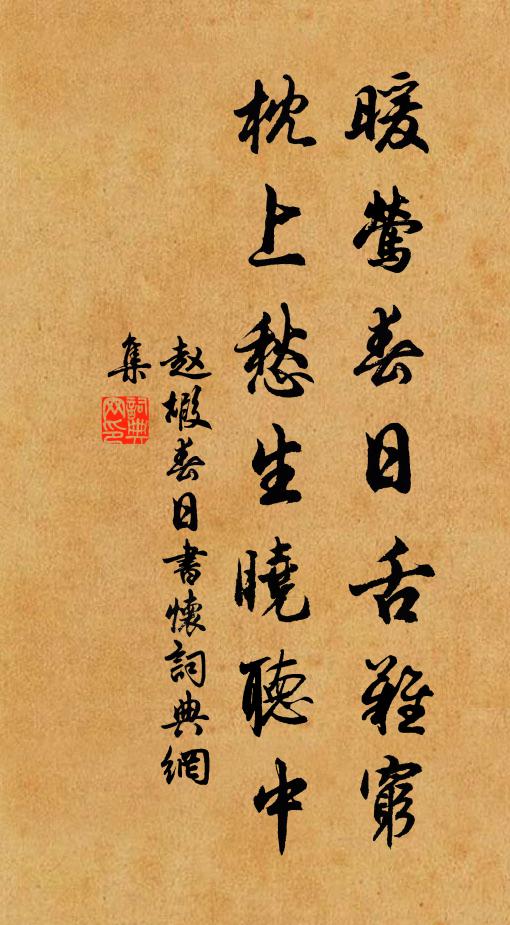 暖鶯春日舌難窮
枕上愁生曉聽中
赵嘏春日書懷詞典網
集
詞典
网印